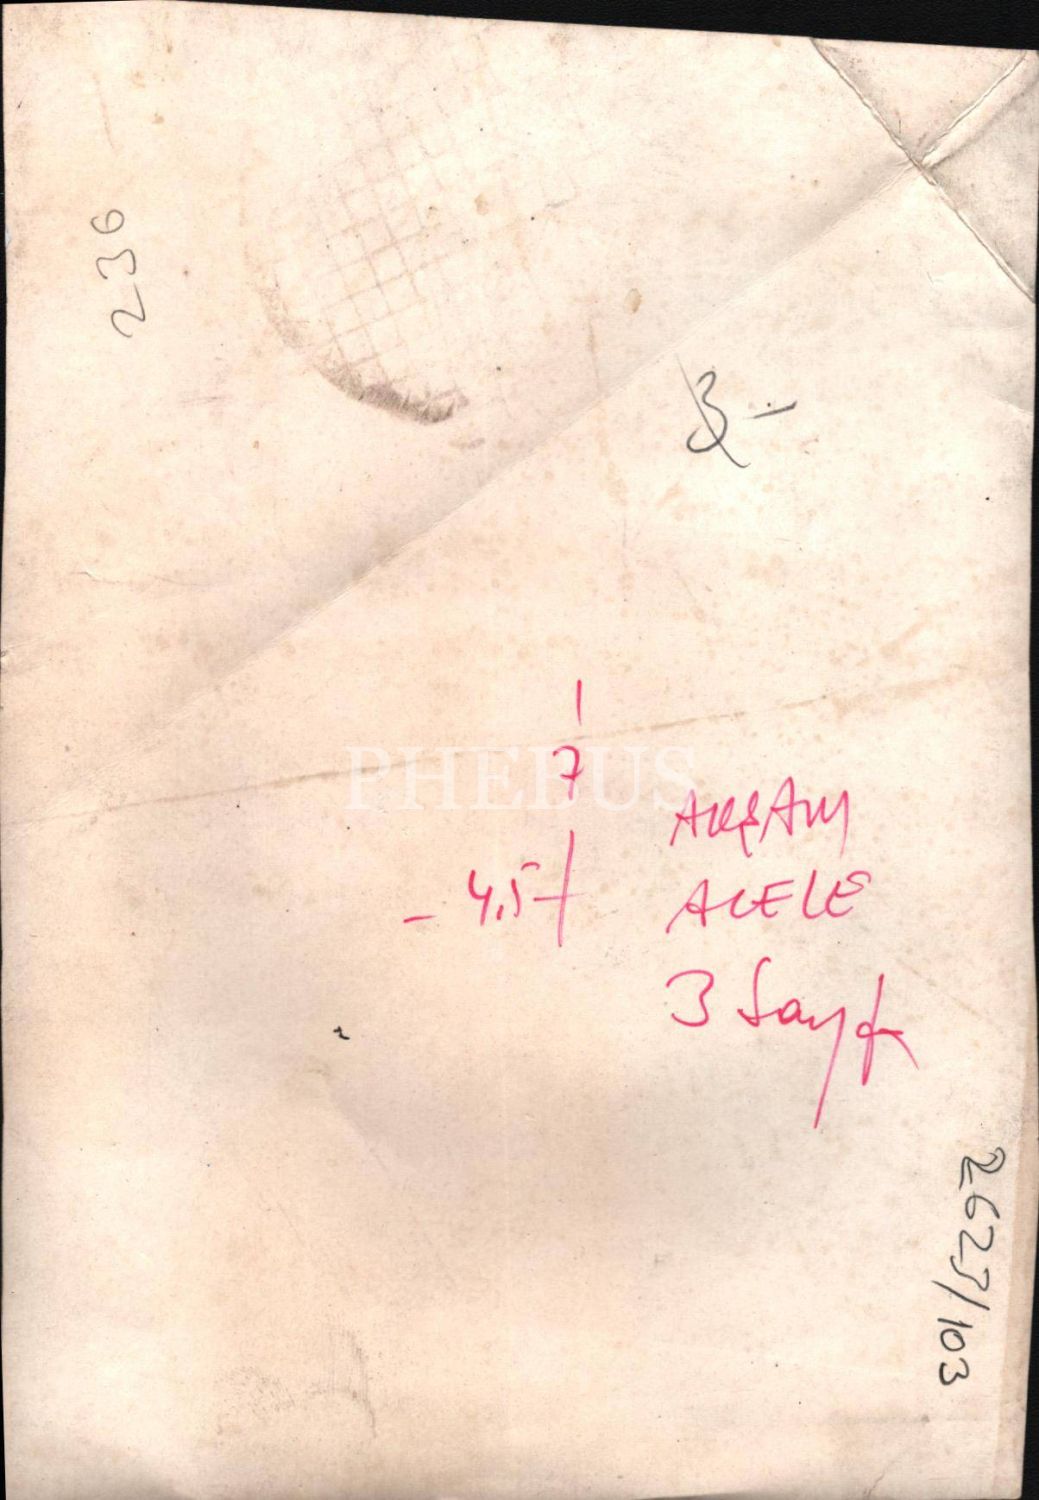 236
3-
PHEBUS
7
AKŞAM
- 4,5
ACELE
3 Sayfa
2623/103